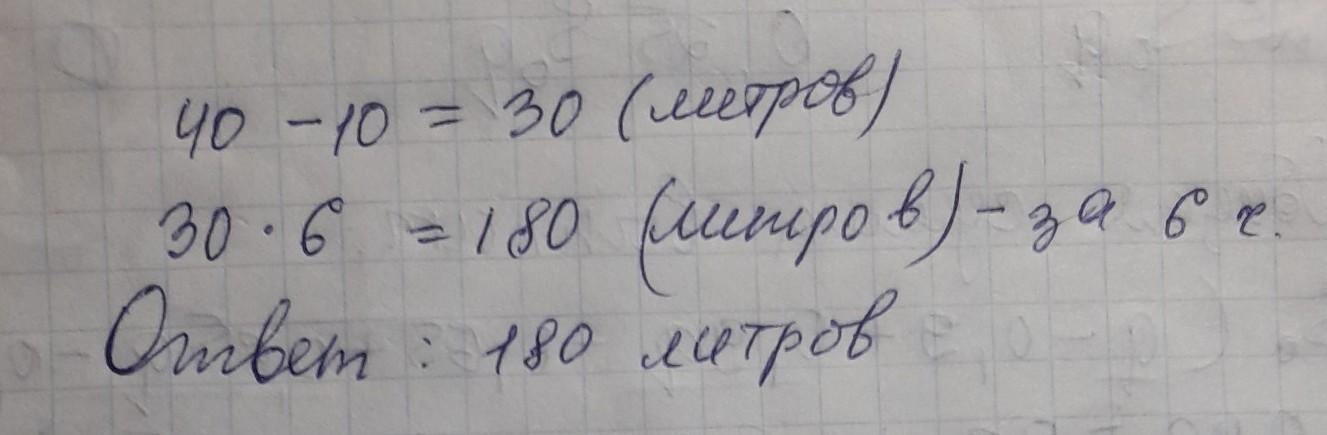 40 - 10 = 30 (литров)
30 · 6 = 180 (литров) - за 6 ч.
Ответ : 180 литров